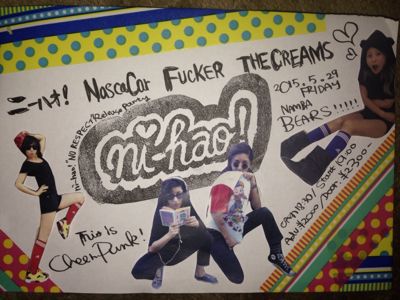 ニーハオ! NASCACAR FUCKER THE CREAMS
ni-hao! "NO RESPECT" Release party
ni-hao!
2015.5.29
FRIDAY
NAMBA
BEARS!!!!!
OPEN 18:30 / START 19:00
Adv. ¥2000 / Door. ¥2300-
This is
Cheer Punk!